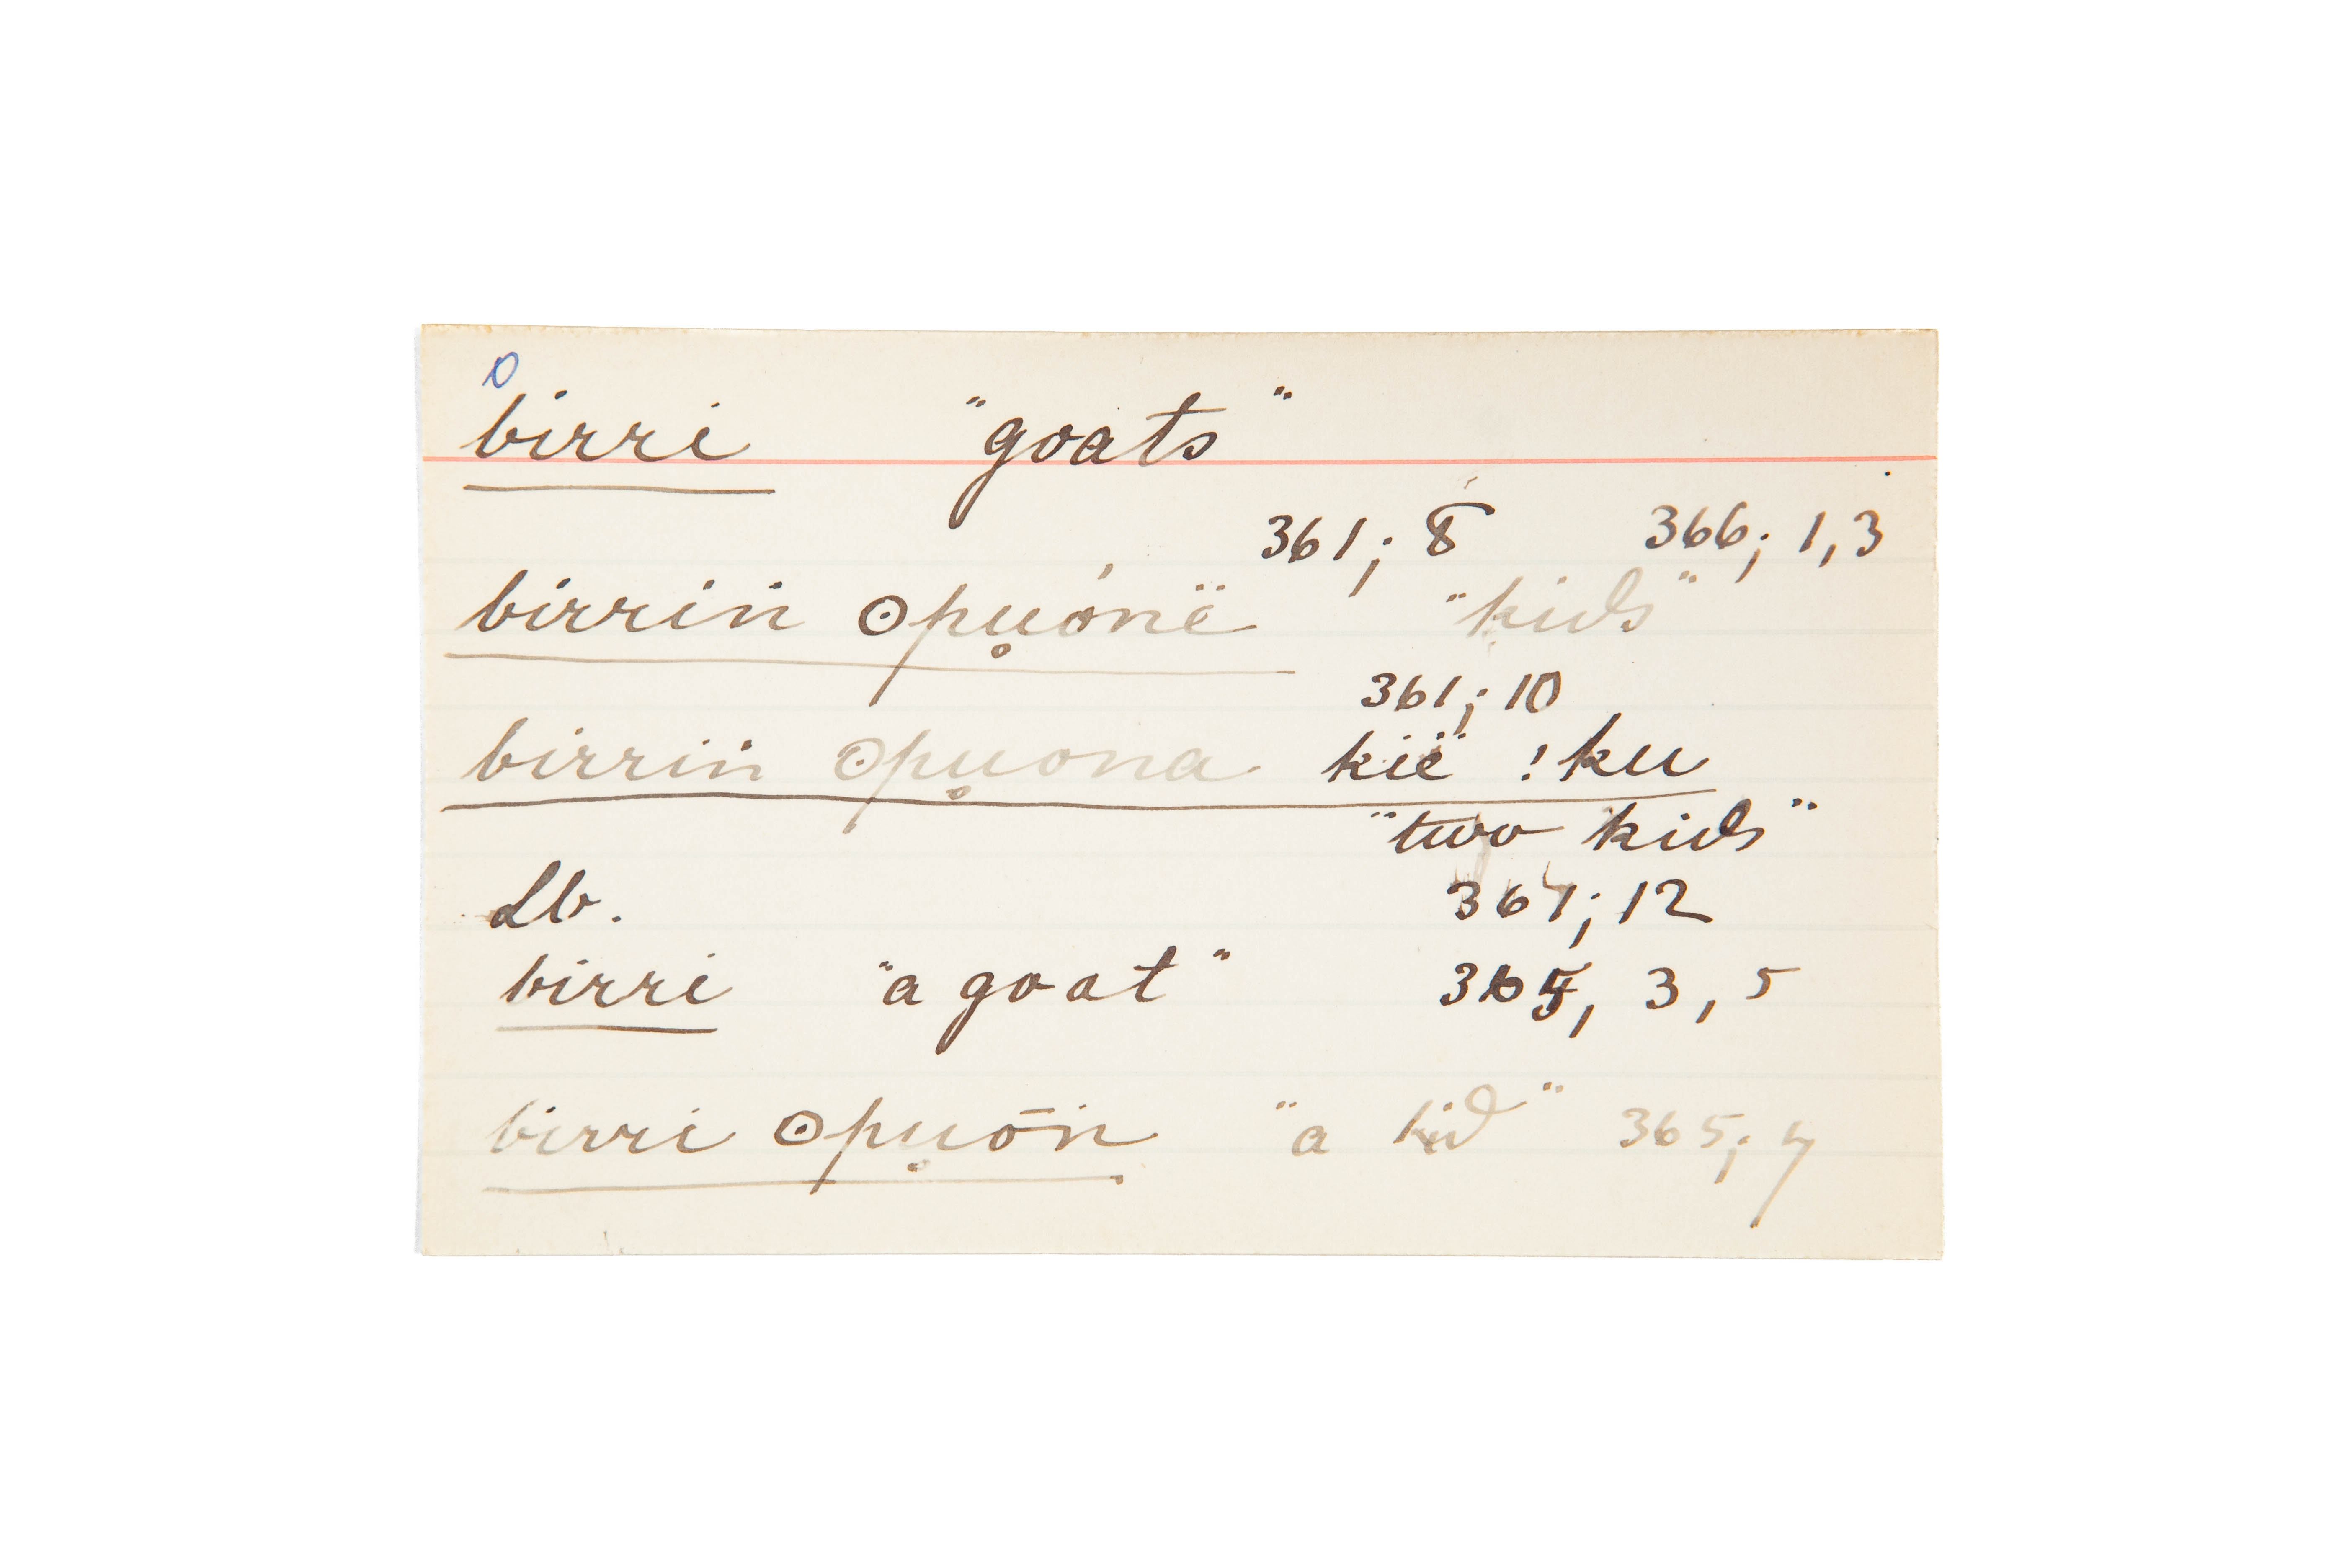 0
birri "goats"
361; 8 366; 1,3
birriṅ ʘpu̥ónë "kids"
361; 10
birriṅ ʘpu̥ona kië !ku
"two kids"
Lb. 361; 12
birri "a goat" 365, 3, 5
birri ʘpu̥ōṅ "a kid" 365; 7